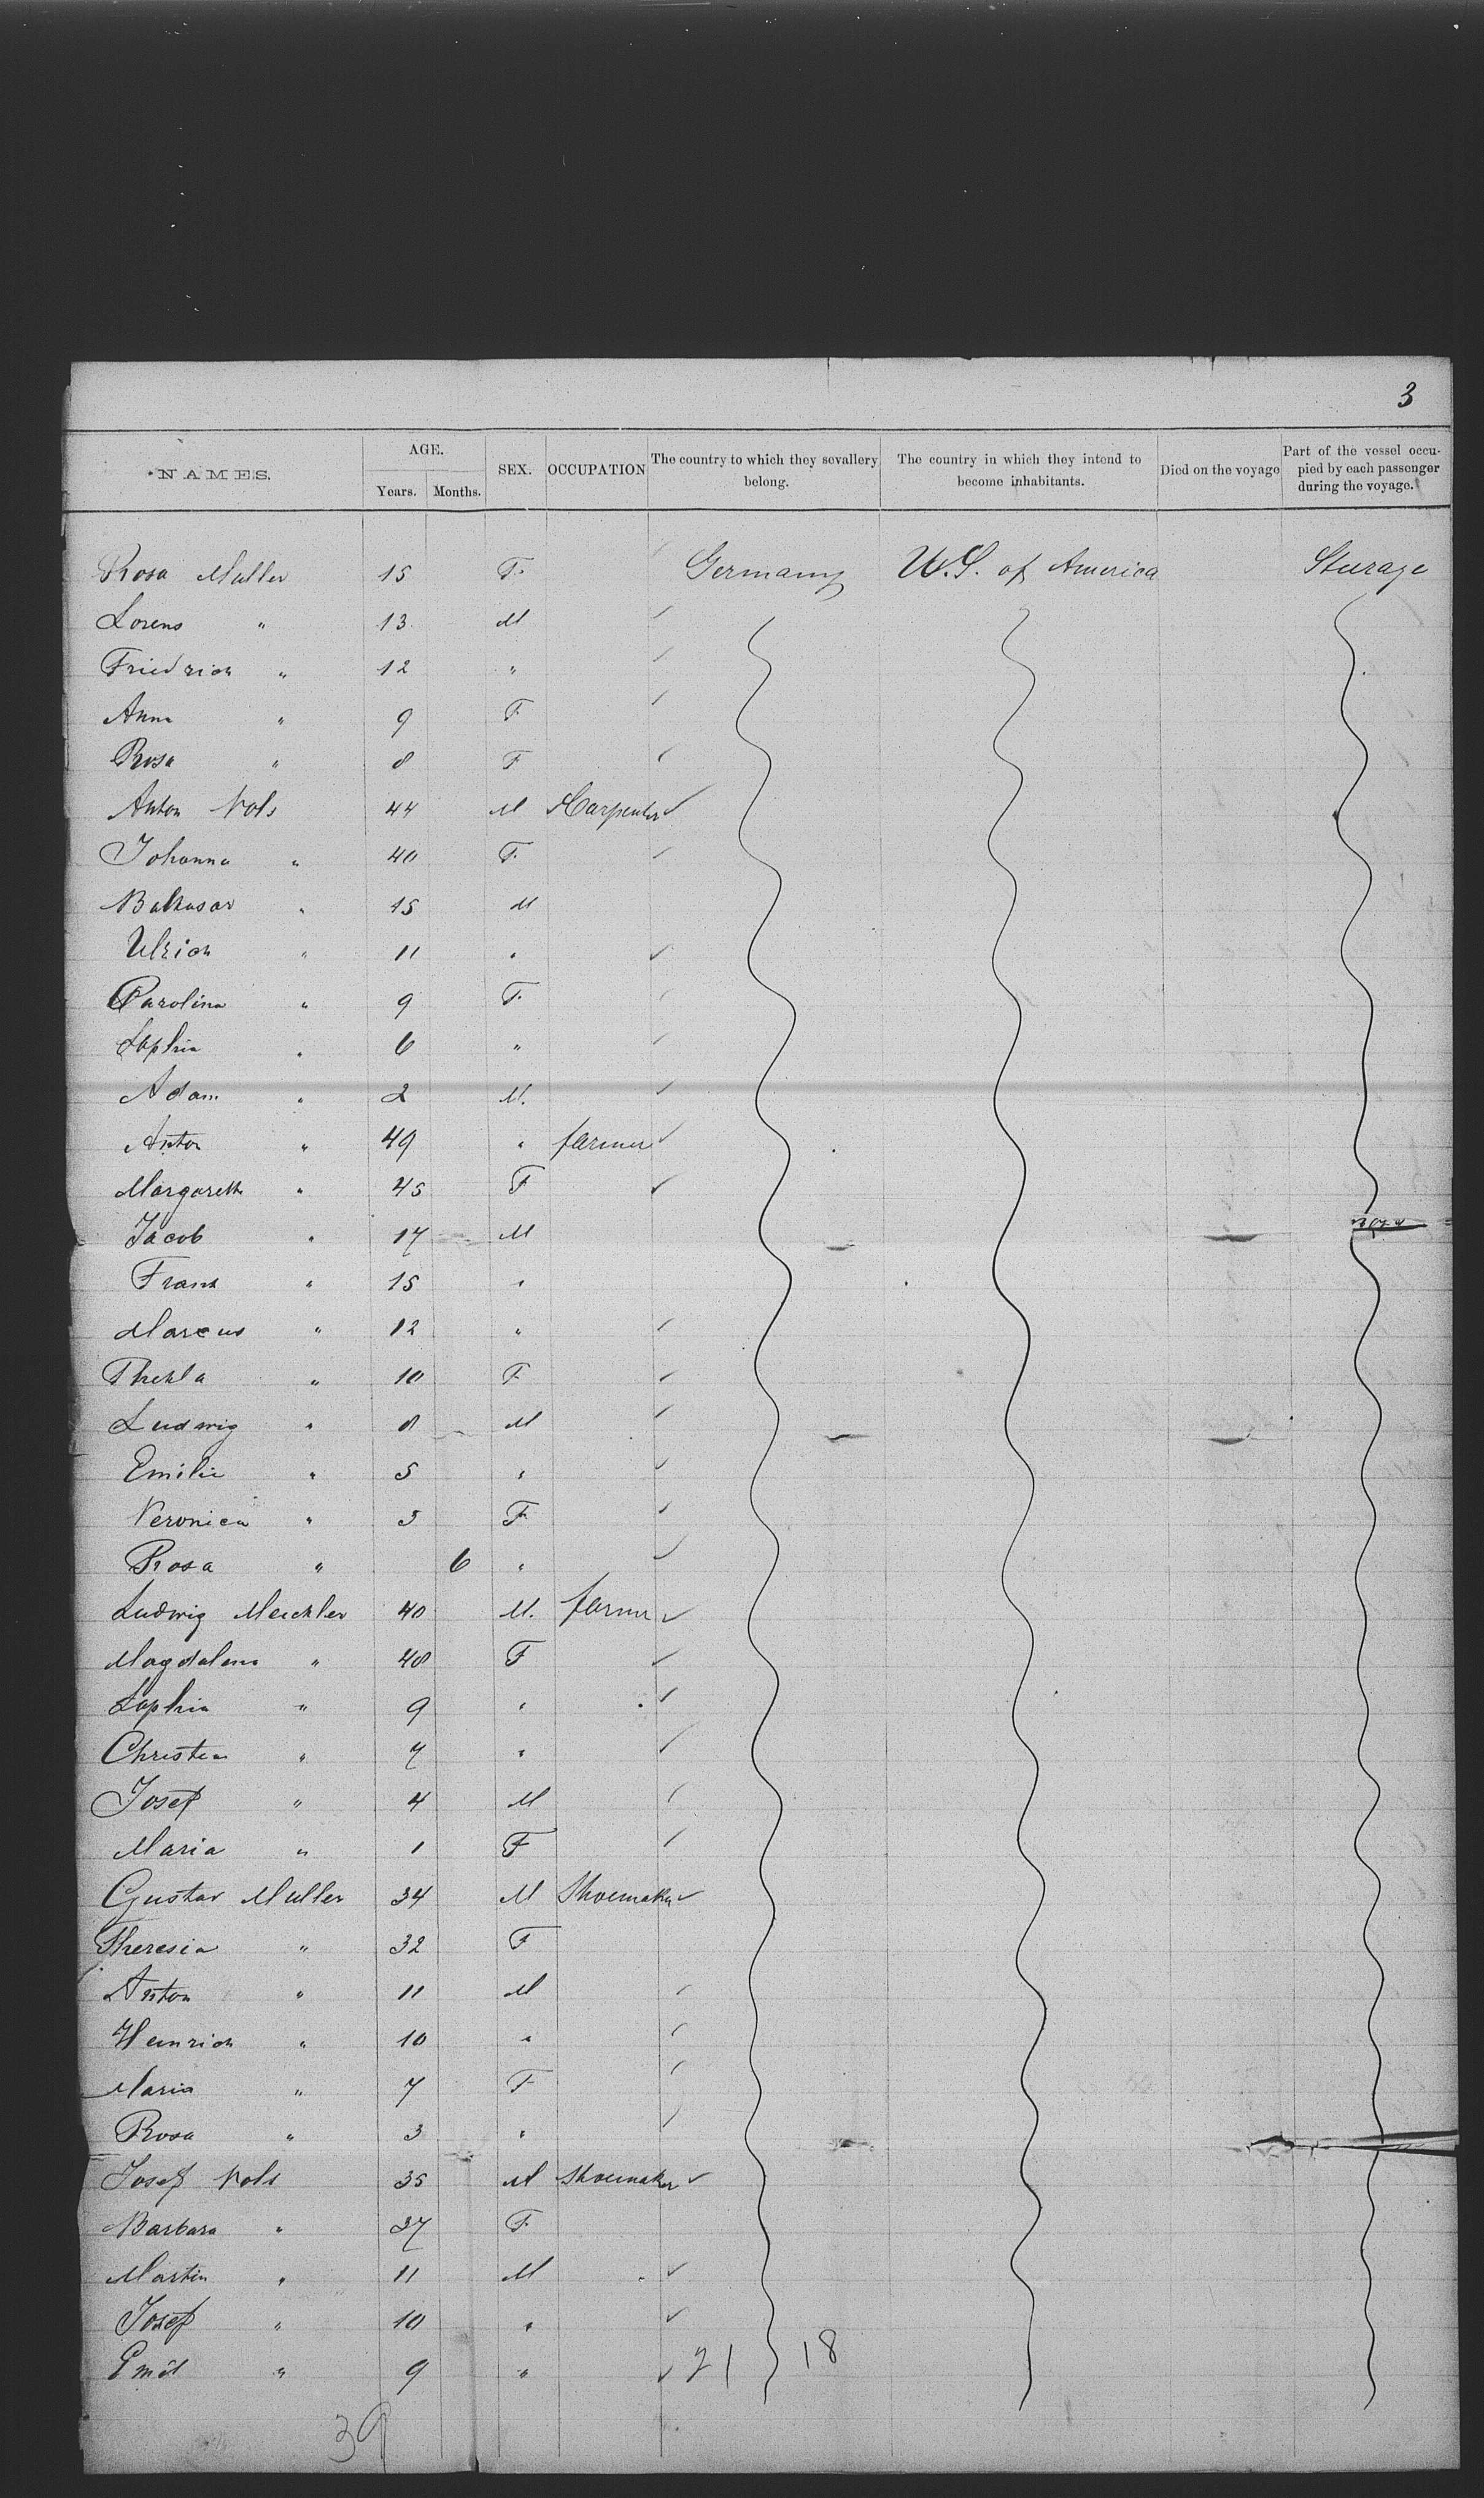 3
NAMES. AGE. Years. Months. SEX. OCCUPATION The country to which they sevallery belong. The country in which they intend to become inhabitants. Died on the voyage Part of the vessel occupied by each passenger during the voyage.
Rosa Muller 15 F. Germany U.S. of America Sturage
Lorens " 13 M
Friedrich " 12 "
Anna " 9 F
Rosa " 8 F
Anton Vols 44 M Carpenter
Johanna " 40 F.
Balthasar " 15 M
Ulrich " 11 "
Carolina " 9 F.
Sophia " 6 "
Adam " 2 M.
Anton " 49 " farmer
Margareth " 45 F
Jacob " 17 M
Frans " 15 "
Marcus " 12 "
Thekla " 10 F
Ludwig " 8 M
Emilie " 5 "
Veronica " 3 F
Rosa " 6 "
Ludwig Meckler 40 M. farmer
Magdalena " 48 F
Sophia " 9 "
Christen " 7 "
Josef " 4 M
Maria " 1 F
Gustav Muller 34 M Shoemaker
Theresia " 32 F
Anton " 11 M
Heinrich " 10 "
Maria " 7 F
Rosa " 3 "
Josef Vols 35 M Shoemaker
Barbara " 37 F.
Martin " 11 M
Josef " 10 "
Emil " 9 " 21 18
39